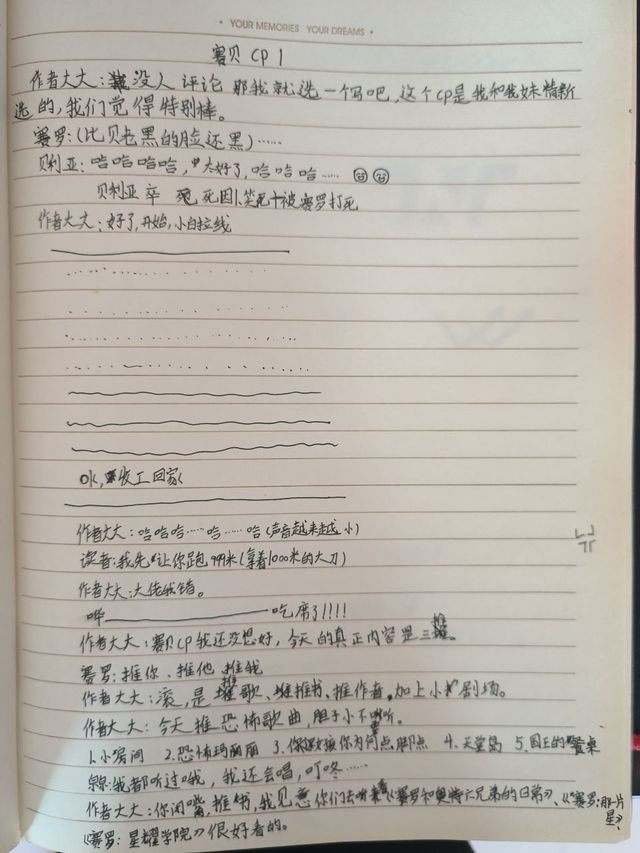 • YOUR MEMORIES YOUR DREAMS •
赛贝 CP 1
作者大大:没人评论 那我就选一个吗吧,这个cp是我和我妹精新
选的,我们觉得特别棒。
赛罗:(比贝老黑的脸还黑)……
贝利亚:哈哈哈哈,太好了,哈哈哈……
贝利亚 卒 死因:笑死+被赛罗打死
作者大大:好了,开始,小白拉线
Ok,收工回家
作者大大:哈哈哈……哈……哈(声音越来越小)
读者:我先让你跑999米(拿着1000米的大刀)
作者大大:大佬我错。
哗————吃席了!!!!
作者大大:赛贝CP我还没想好,今天的真正内容是三推。
赛罗:推你、推他 推我
作者大大:滚,是推歌、推书、推作者,加上小剧场。
作者大大:今天推恐怖歌曲,胆子小不听。
1.小房间 2.恐怖玛丽丽 3.你 女孩你为何点脚点 4.天堂岛 5.国王的餐桌
:我都听过哦,我还会唱,叮咚……
作者大大:你闭嘴,推书,我见 你们去 《赛罗和奥特六兄弟的日常》、《赛罗:那一片
星》、
《赛罗:星耀学院》很好看的。